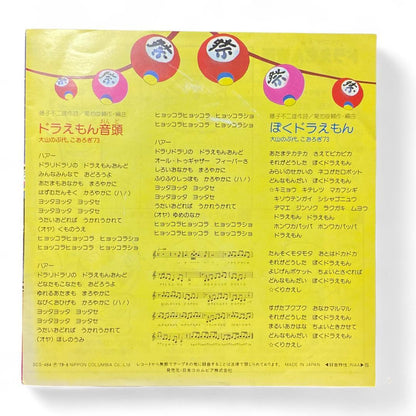 祭
祭
祭
祭
藤子不二雄作詞/菊池俊輔作・編曲
ドラえもん音頭
おんど
大山のぶ代、こおろぎ'73
ハアー
ドラドラドラの ドラえもんおんど
みんなみんなで おどろうよ
あたまもおなかも まろやかに
はずむたんそく かろやかに(ハハ)
ヨッタヨッタ ヨッタセ
ヨッタヨッタ ヨッタセ
うたいおどれば うかれうかれて
(オヤ)くものうえ
ヒョッコラヒョッコラ ヒョッコラショ
ヒョッコラヒョッコラ ヒョッコラショ
ハアー
ドラドラドラの ドラえもんおんど
どなたもこなたも おどろうよ
ゆれるあたまも まろやかに
なびくおひげも かろやかに(ハハ)
ヨッタヨッタ ヨッタセ
ヨッタヨッタ ヨッタセ
うたいおどれば うかれうかれて
(オヤ)ほしのうみ
ヒョッコラヒョッコラ ヒョッコラショ
ヒョッコラヒョッコラ ヒョッコラショ
ハアー
ドラドラドラの ドラえもんおんど
オール・トゥギャザー フィーバーさ
しろいおなかも まろやかに
ふりふりしっぽも かろやかに(ハハ)
ヨッタヨッタ ヨッタセ
ヨッタヨッタ ヨッタセ
うたいおどれば うかれうかれて
(オヤ)ゆめのなか
ヒョッコラヒョッコラ ヒョッコラショ
ヒョッコラヒョッコラ ヒョッコラショ
藤子不二雄作詞/菊池俊輔作・編曲
ぼくドラえもん
大山のぶ代、こおろぎ'73
あたまテカテカ さえてピカピカ
それがどうした ぼくドラえもん
みらいのせかいの ネコがたロボット
どんなもんだい ぼくドラえもん
☆キミョウ キテレツ マカフシギ
キソウテンガイ シシャゴニュウ
デマエ ジンソク ラクガキ ムヨウ
ドラえもん ドラえもん
ホンワカパッパ ホンワカパッパ
ドラえもん
たんそくモタモタ おとはドカドカ
それがどうした ぼくドラえもん
よじげんポケット ちょいとさぐれば
どんなもんだい ぼくドラえもん
☆くりかえし
すがたブクブク おなかマルマル
それがどうした ぼくドラえもん
まるいあかはな ちょいときかせて
どんなもんだい ぼくドラえもん
☆くりかえし
SCS-464 Ⓟ'79・8 NIPPON COLUMBIA CO.,Ltd.
レコードから無断でテープその他に録音することは法律で禁じられております。
発売元・日本コロムビア株式会社
MADE IN JAPAN